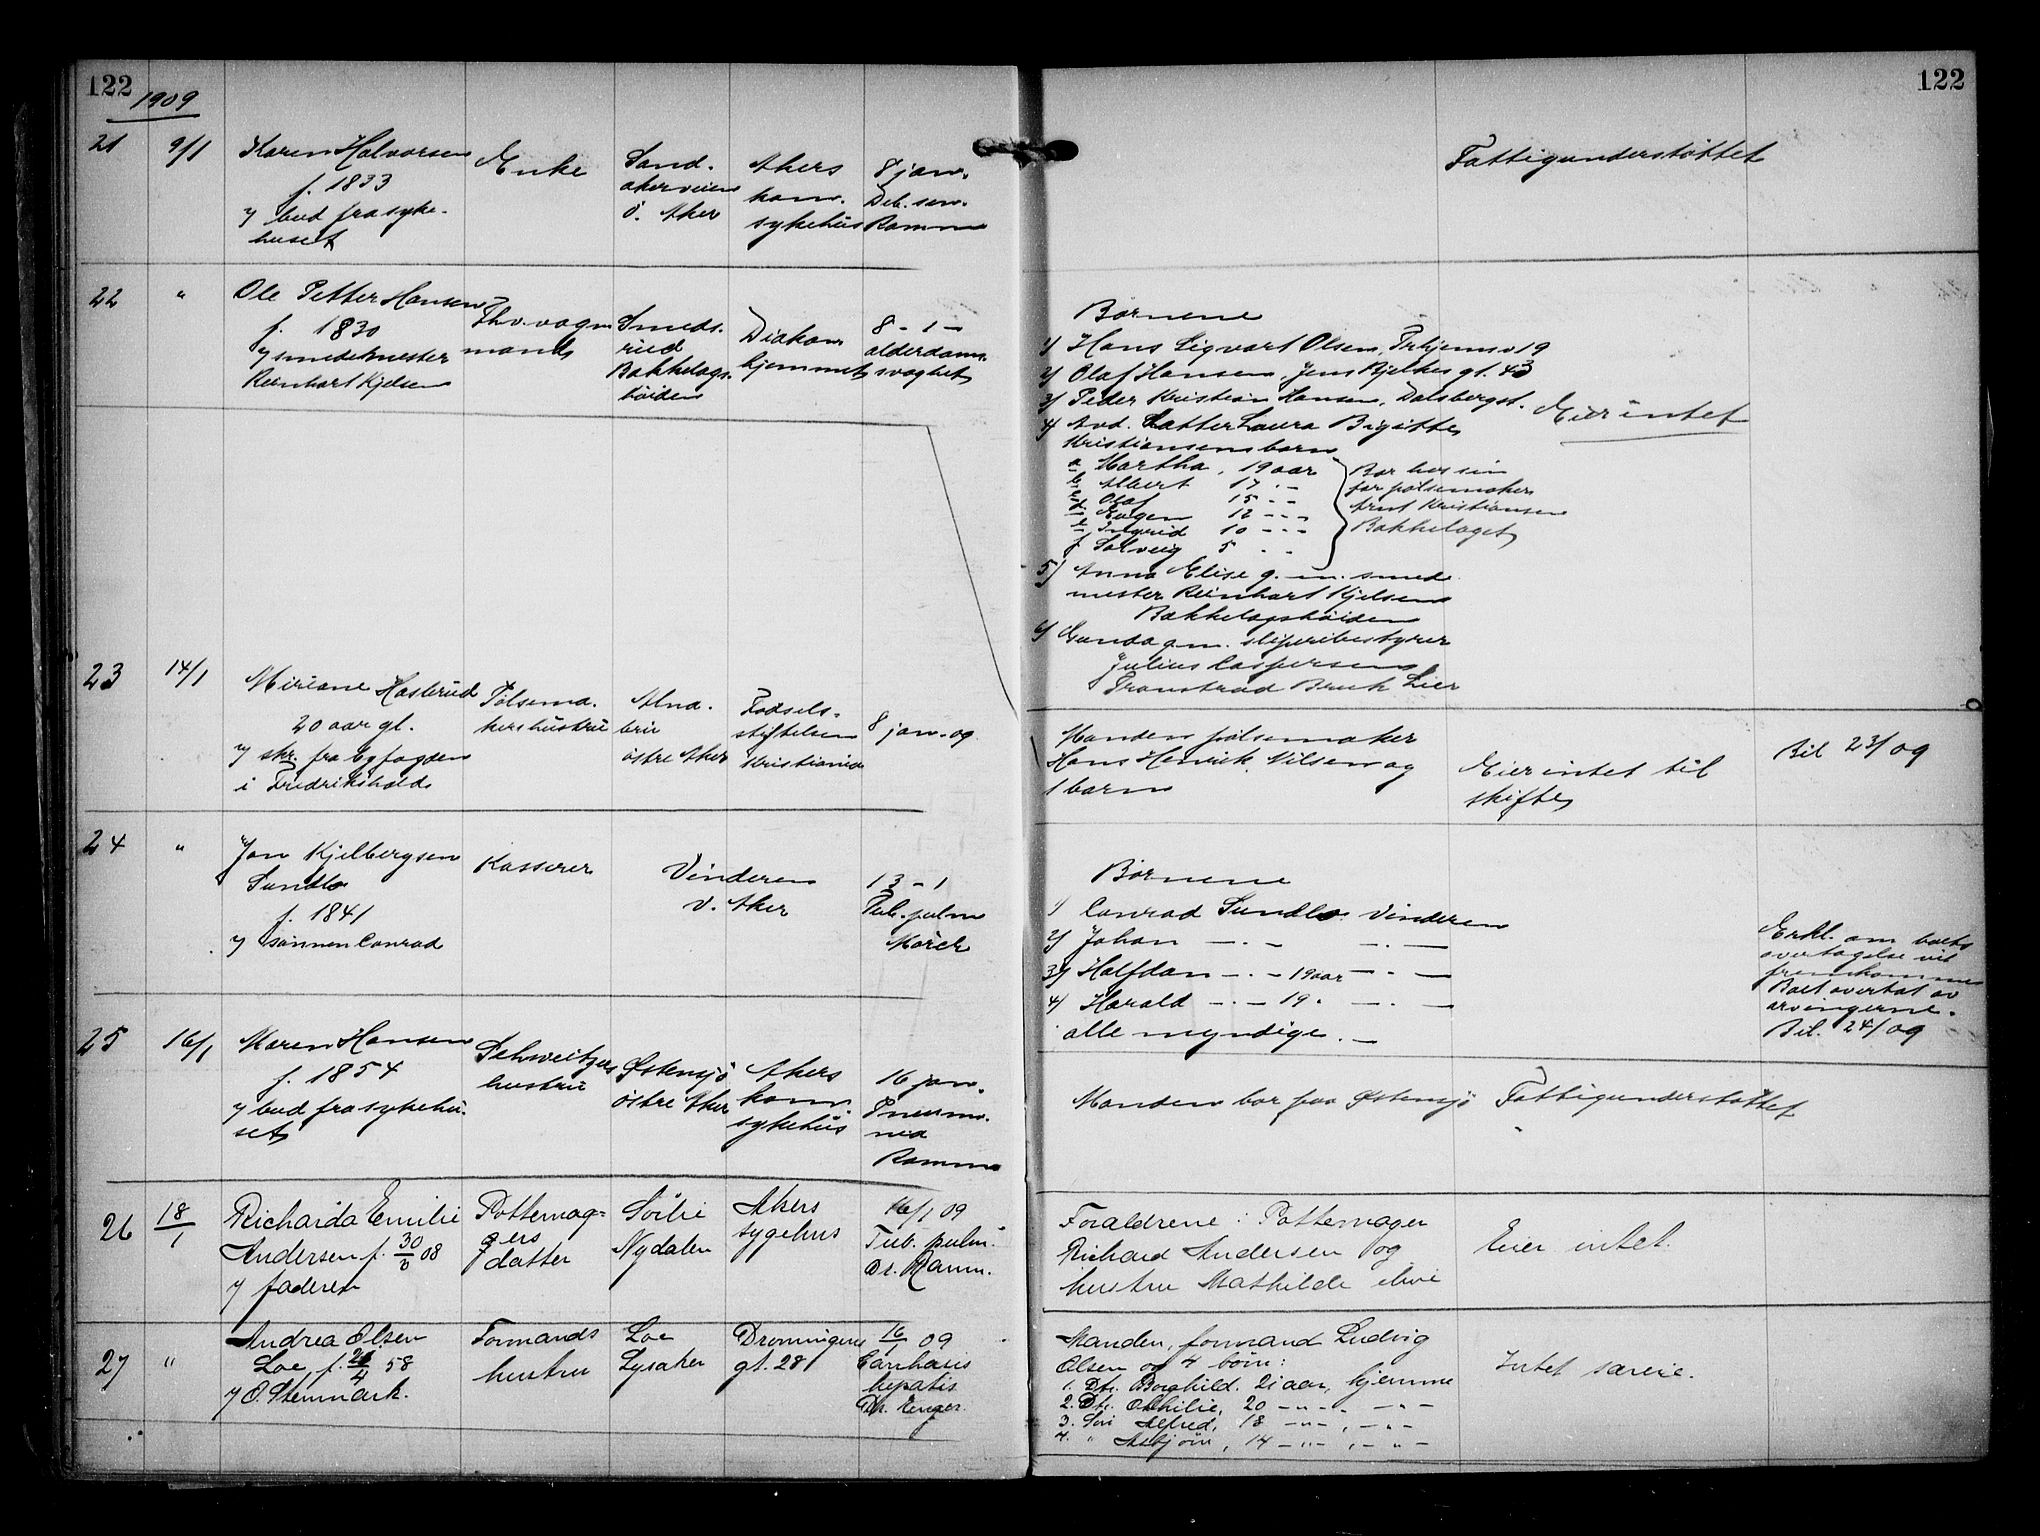 122
1909
122
21
9/1
Karen Halvorsen
f. 1833
v/ bud fra syke-
huset
Enke
Sand-
akerveien
ö. Aker
Akers
kom.
sykehus
8 jan.
Deb. sen.
Ramm
Fattigunderstøttet
22
"
Ole Petter Hansen
f. 1830
v/ smedemester
Reinhart Kjelsen
Fhv. vogn
mands
Smeds-
rud
Bækkelags-
höiden
Diakon
hjemmet
8 - 1 -
alderdoms-
svaghet
Børnene
1/ Hans Sigvart Olsen, 19
2/ Olaf Hansen, Jens Bjelkes gt. 43
3/ Peder Kristian Hansen, Dalsbergst.
4/ Avd. Datter Laura Birgitte
Kristiansens barn
a Martha, 19 aar
b Albert 17 - -
c Olaf 15 - -
d Eugen 12 - - -
e Ingrid 10 - - -
f Solveig 5 - -
Bor hos sin
far pølsemaker
Kristiansen
Bækkelaget
5/ Anna Elise g. m. smed
mester Reinhart Kjelsen
Bækkelagshöiden
6/ Gunda g. m. sliperibestyrer
Julius Caspersen
Bruk Lier
Eier intet
23
14/1
Miriane Hasterud
20 aar gl.
v/ skr. fra byfogden
i Fredrikshald
Pølsema-
kers hustru
Alna-
bru
östre Aker
Fødsels-
stiftelsen
Kristiania
8 jan. 09
Manden pølsemaker
Hans Henrik Nilsen og
1 barn
Eier intet til
skifte
Bil 23/09
24
"
Jon Kjelbergsen
Sundlo
f. 1841
v/ sønnen Conrad
Kasserer
Vinderen
V. Aker
13 - 1
Tub. pulm
Mörch
Børnene
1/ Conrad Sundlo Vinderen
2/ Johan - . - - . -
3/ Halfdan - . - 19 aar - . -
4/ Harald - . - 19 . - . -
alle myndige. -
Erkl. om boets
overtagelse vil
fremkomme
Boet overtat av
arvingerne.
Bil. 24/09
25
16/1
Maren Hansen
f. 1854
v/ bud fra sykehu-
set
Schweitzers
hustru
Østensjö
östre Aker
Akers
kom.
sykehus
16 jan.
Pneumo-
nia
Ramm
Manden bor paa Østensjö
Fattigunderstøttet
26
18/1
Richarda Emilie
Andersen f. 30/6 08
v/ faderen
Pottemag-
gers
datter
Sörlie
Nydalen
Akers
sygehus
16/1 09
Tub. pulm.
Dr. Ramm.
Forældrene: Pottemager
Richard Andersen og
hustru Mathilde
Eier intet.
27
"
Andrea Olsen
Loe f. 26/4 58
v/ O. Stenmark.
Formands
hustru
Loe
Lysaker
Dronningens
gt. 28
16/1 09
hepatis
Dr. Enger.
Manden, formand Ludvig
Olsen og 4 børn:
1. Dtr. Borghild. 21 aar, hjemme
2. Dtr. Othilie, 20 - " - - " -
3. Søn Alfred, 18 - " - , - " -
4. " Asbjörn, 14 - " - , - " -
Intet særeie.